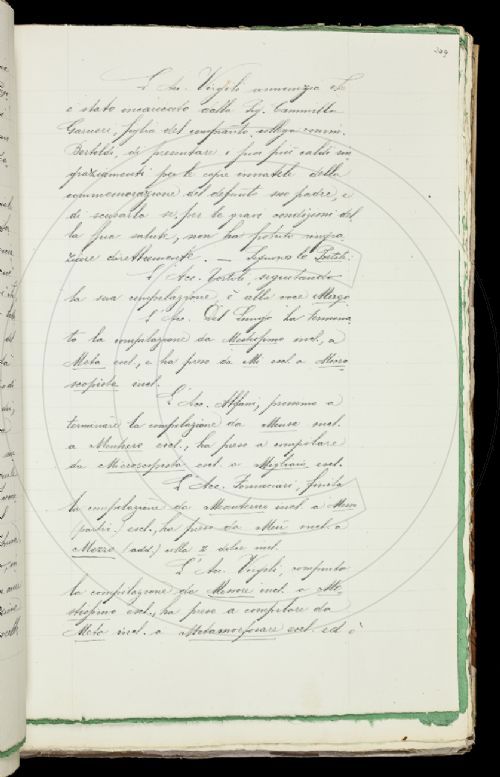 209
L'Acc. Vergoli annunzia che
è stato incaricato dalla Sig. Cammilla
figlia del compianto collega comm.
di presentare i suoi più caldi rin
graziamenti per le copie inviatele della
commemorazione del defunto suo padre, e
di scusarla se, per le gravi condizioni del
la sua salute, non ha potuto ringra
ziare direttamente. —
L'Acc. Tortoli, seguitando
la sua compilazione, è alla voce Margo
L'Acc. Del Lungo ha termina
to la compilazione da Mestissimo incl. a
Meta escl., e ha preso da Mi escl. a
scopista incl.
L'Acc. Alfani, prossimo a
terminare la compilazione da Mensa incl.
a escl., ha preso a compilare
da Microscopista escl. a Migliaio escl.
L'Acc. Fornaciari, finita
la compilazione da incl. a Men
(partic.) escl., ha preso da incl. a
Mezzo (add.) colla Z dolce incl.
L'Acc. Vergoli, compiuta
la compilazione da Menare incl. a Me-
stissimo escl., ha preso a compilare da
Meta incl. a Metamorfosare escl. ed è